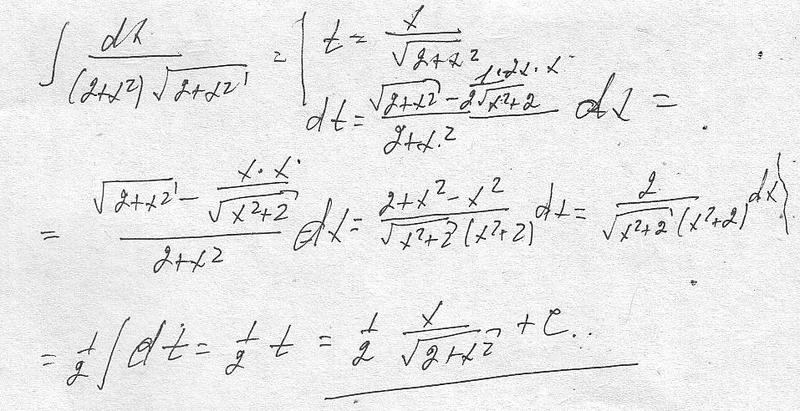 ∫ dx / ((2+x²) √(2+x²)) = | t = x / √(2+x²)
dt = (√(2+x²) - (1·2x·x) / (2√(x²+2))) / (2+x²) dx =
= (√(2+x²) - (x·x) / √(x²+2)) / (2+x²) dx = (2+x²-x²) / (√(x²+2) (x²+2)) dx = 2 / (√(x²+2) (x²+2)) dx }
= 1/2 ∫ dt = 1/2 t = 1/2 x / √(2+x²) + C..